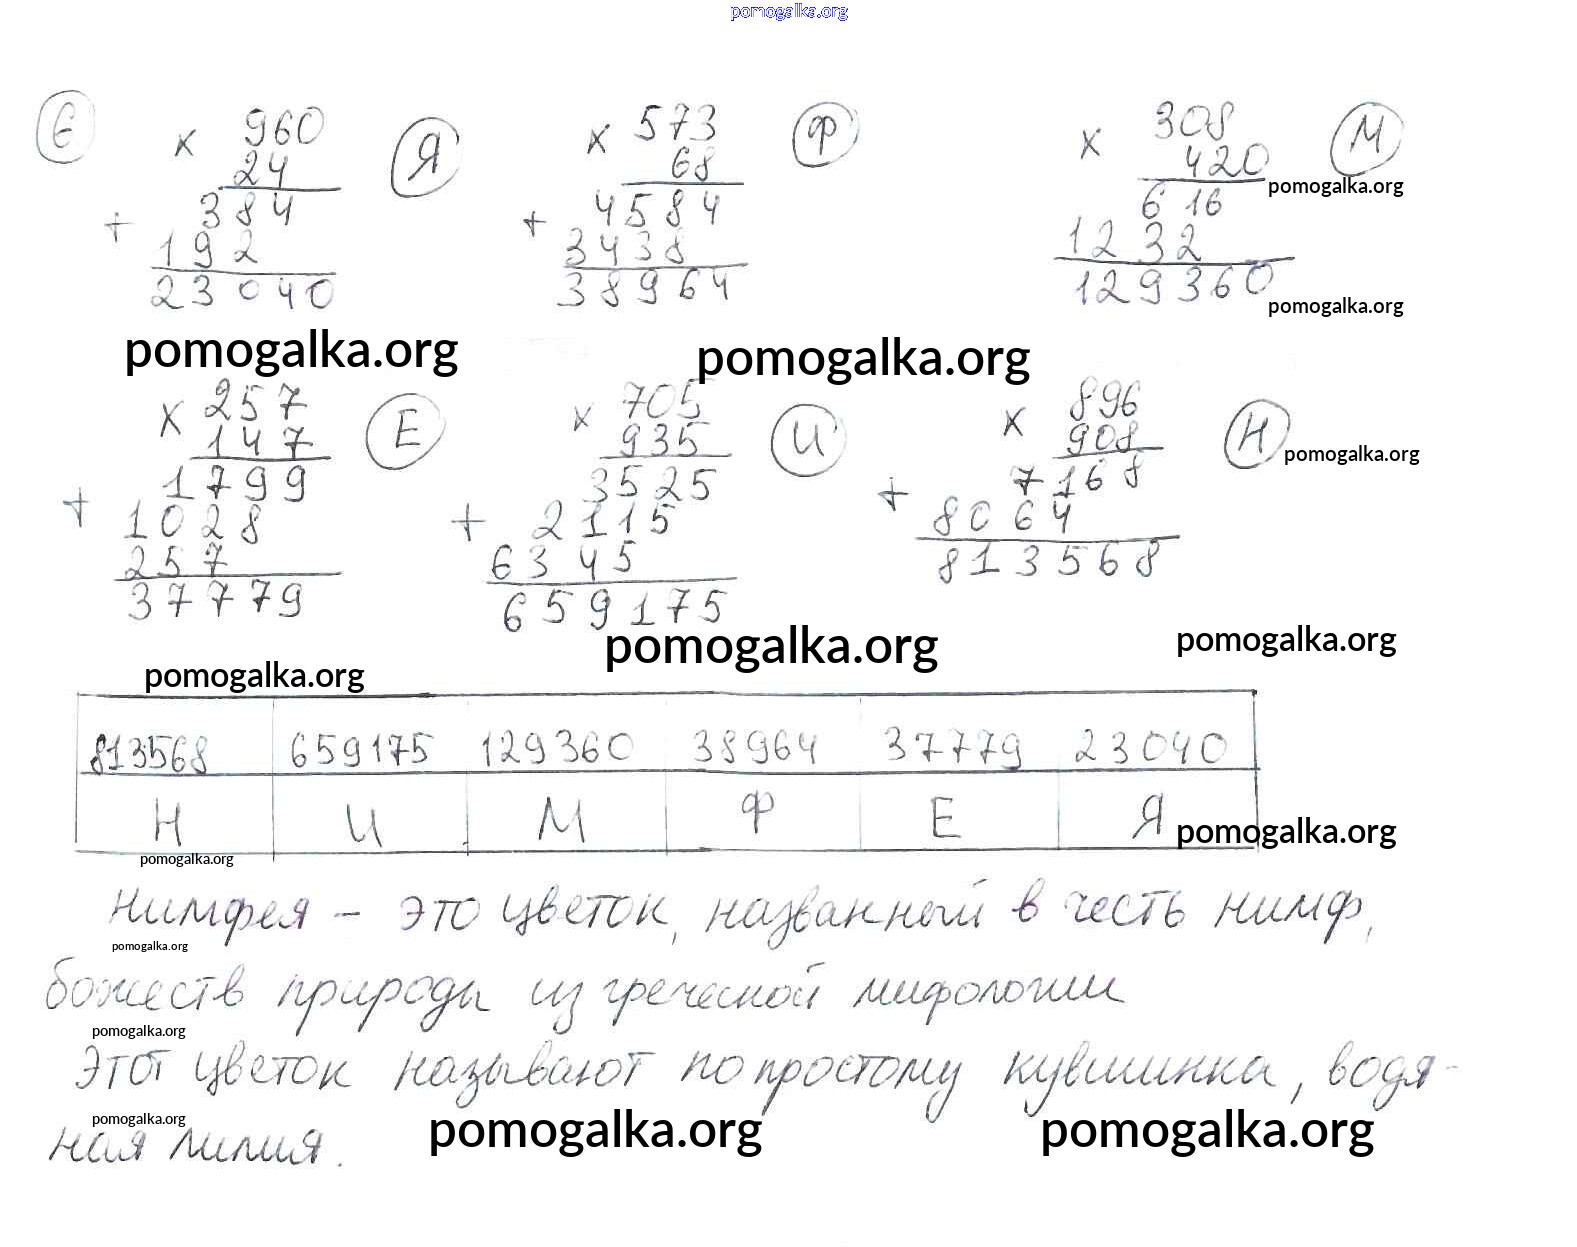 pomogalka.org
6
× 960 Я × 573 Ф × 308 М
24 68 420
pomogalka.org
+ 384 + 4584 616
192 3438 1232
23040 38964 129360
pomogalka.org
pomogalka.org pomogalka.org
× 257 Е × 705 И × 896 Н
147 935 908
pomogalka.org
+ 1799 3525 + 7168
1028 + 2115 8064
257 6345 813568
37779 659175
pomogalka.org pomogalka.org
pomogalka.org
813568 659175 129360 38964 37779 23040
Н И М Ф Е Я
pomogalka.org
pomogalka.org
Нимфея – это цветок, названный в честь нимф,
pomogalka.org
божеств природы из греческой мифологии
pomogalka.org
Этот цветок называют по простому кувшинка, водя-
pomogalka.org
ная лилия.
pomogalka.org pomogalka.org